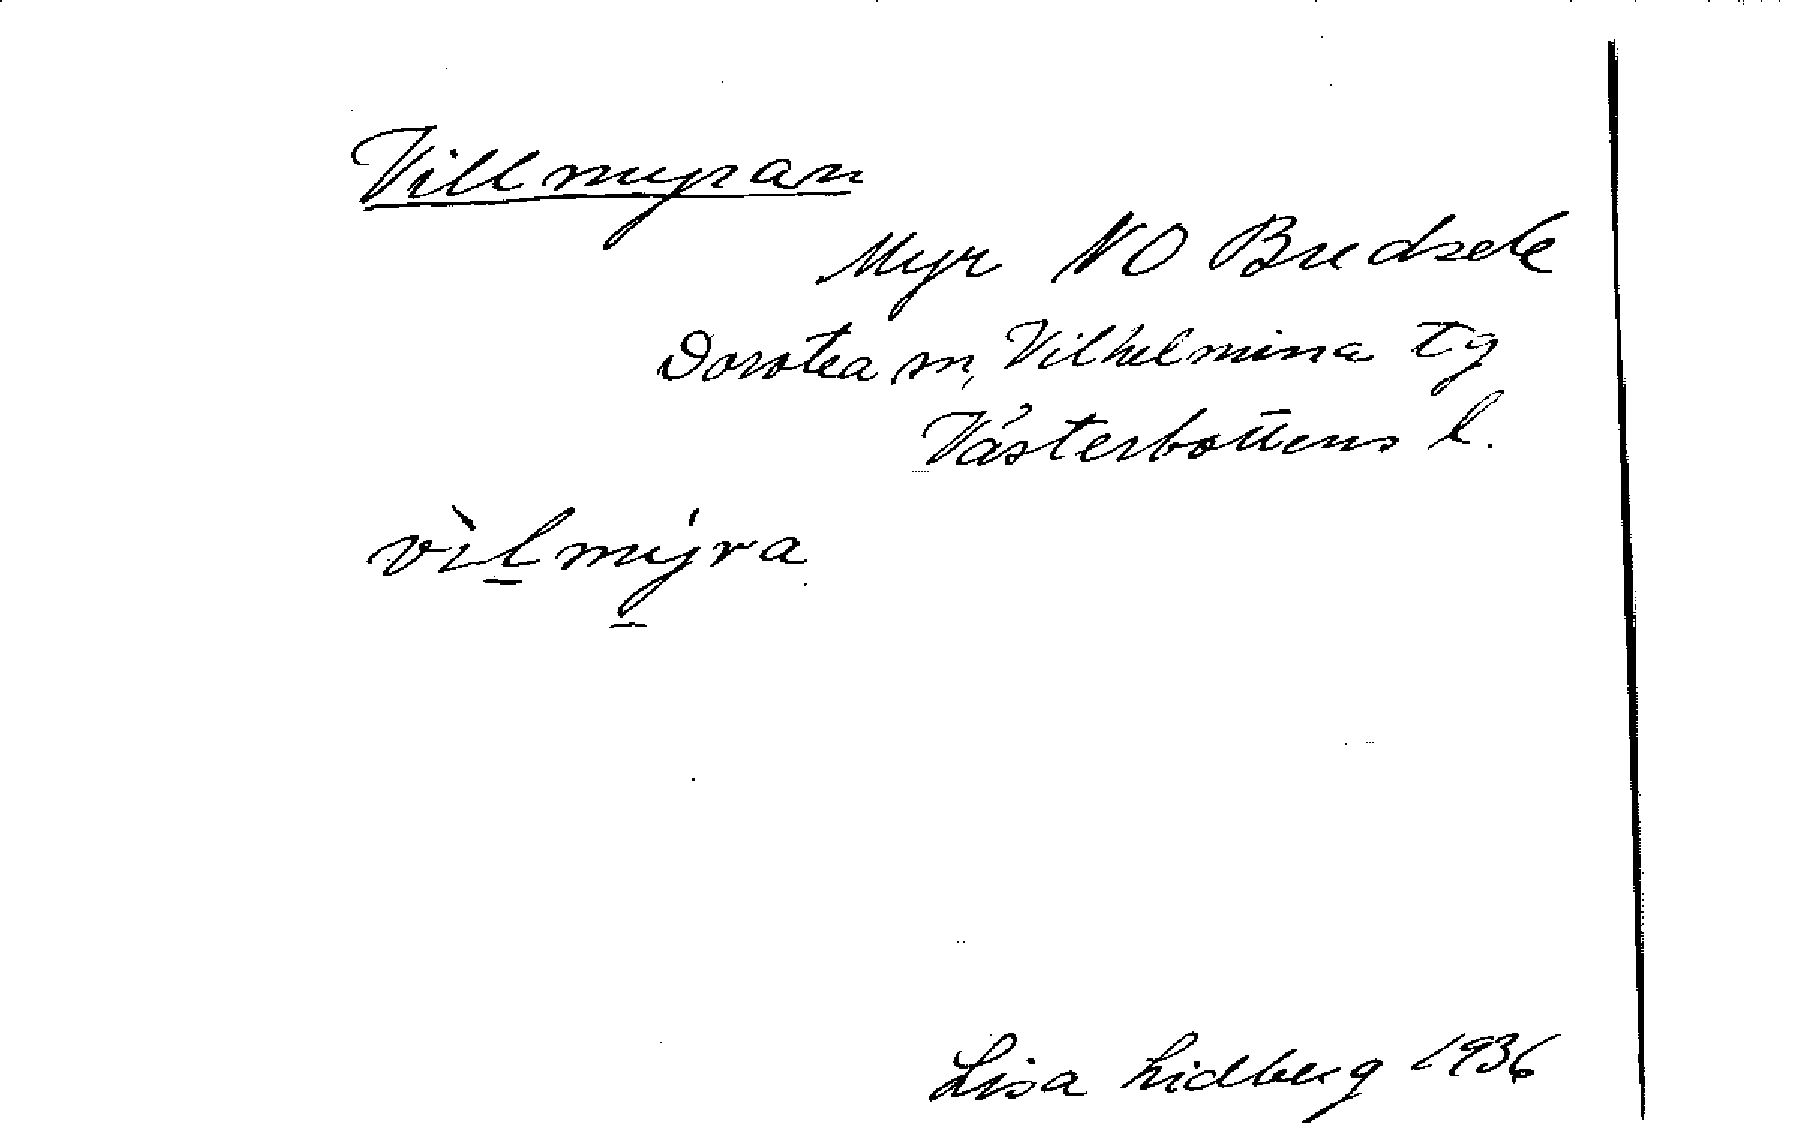 Villmyran
Myr NO Bredsele
Dorotea sn, Vilhelmina tg
Västerbottens l.
vìl̲mý̲ra
Lisa Lidberg 1936